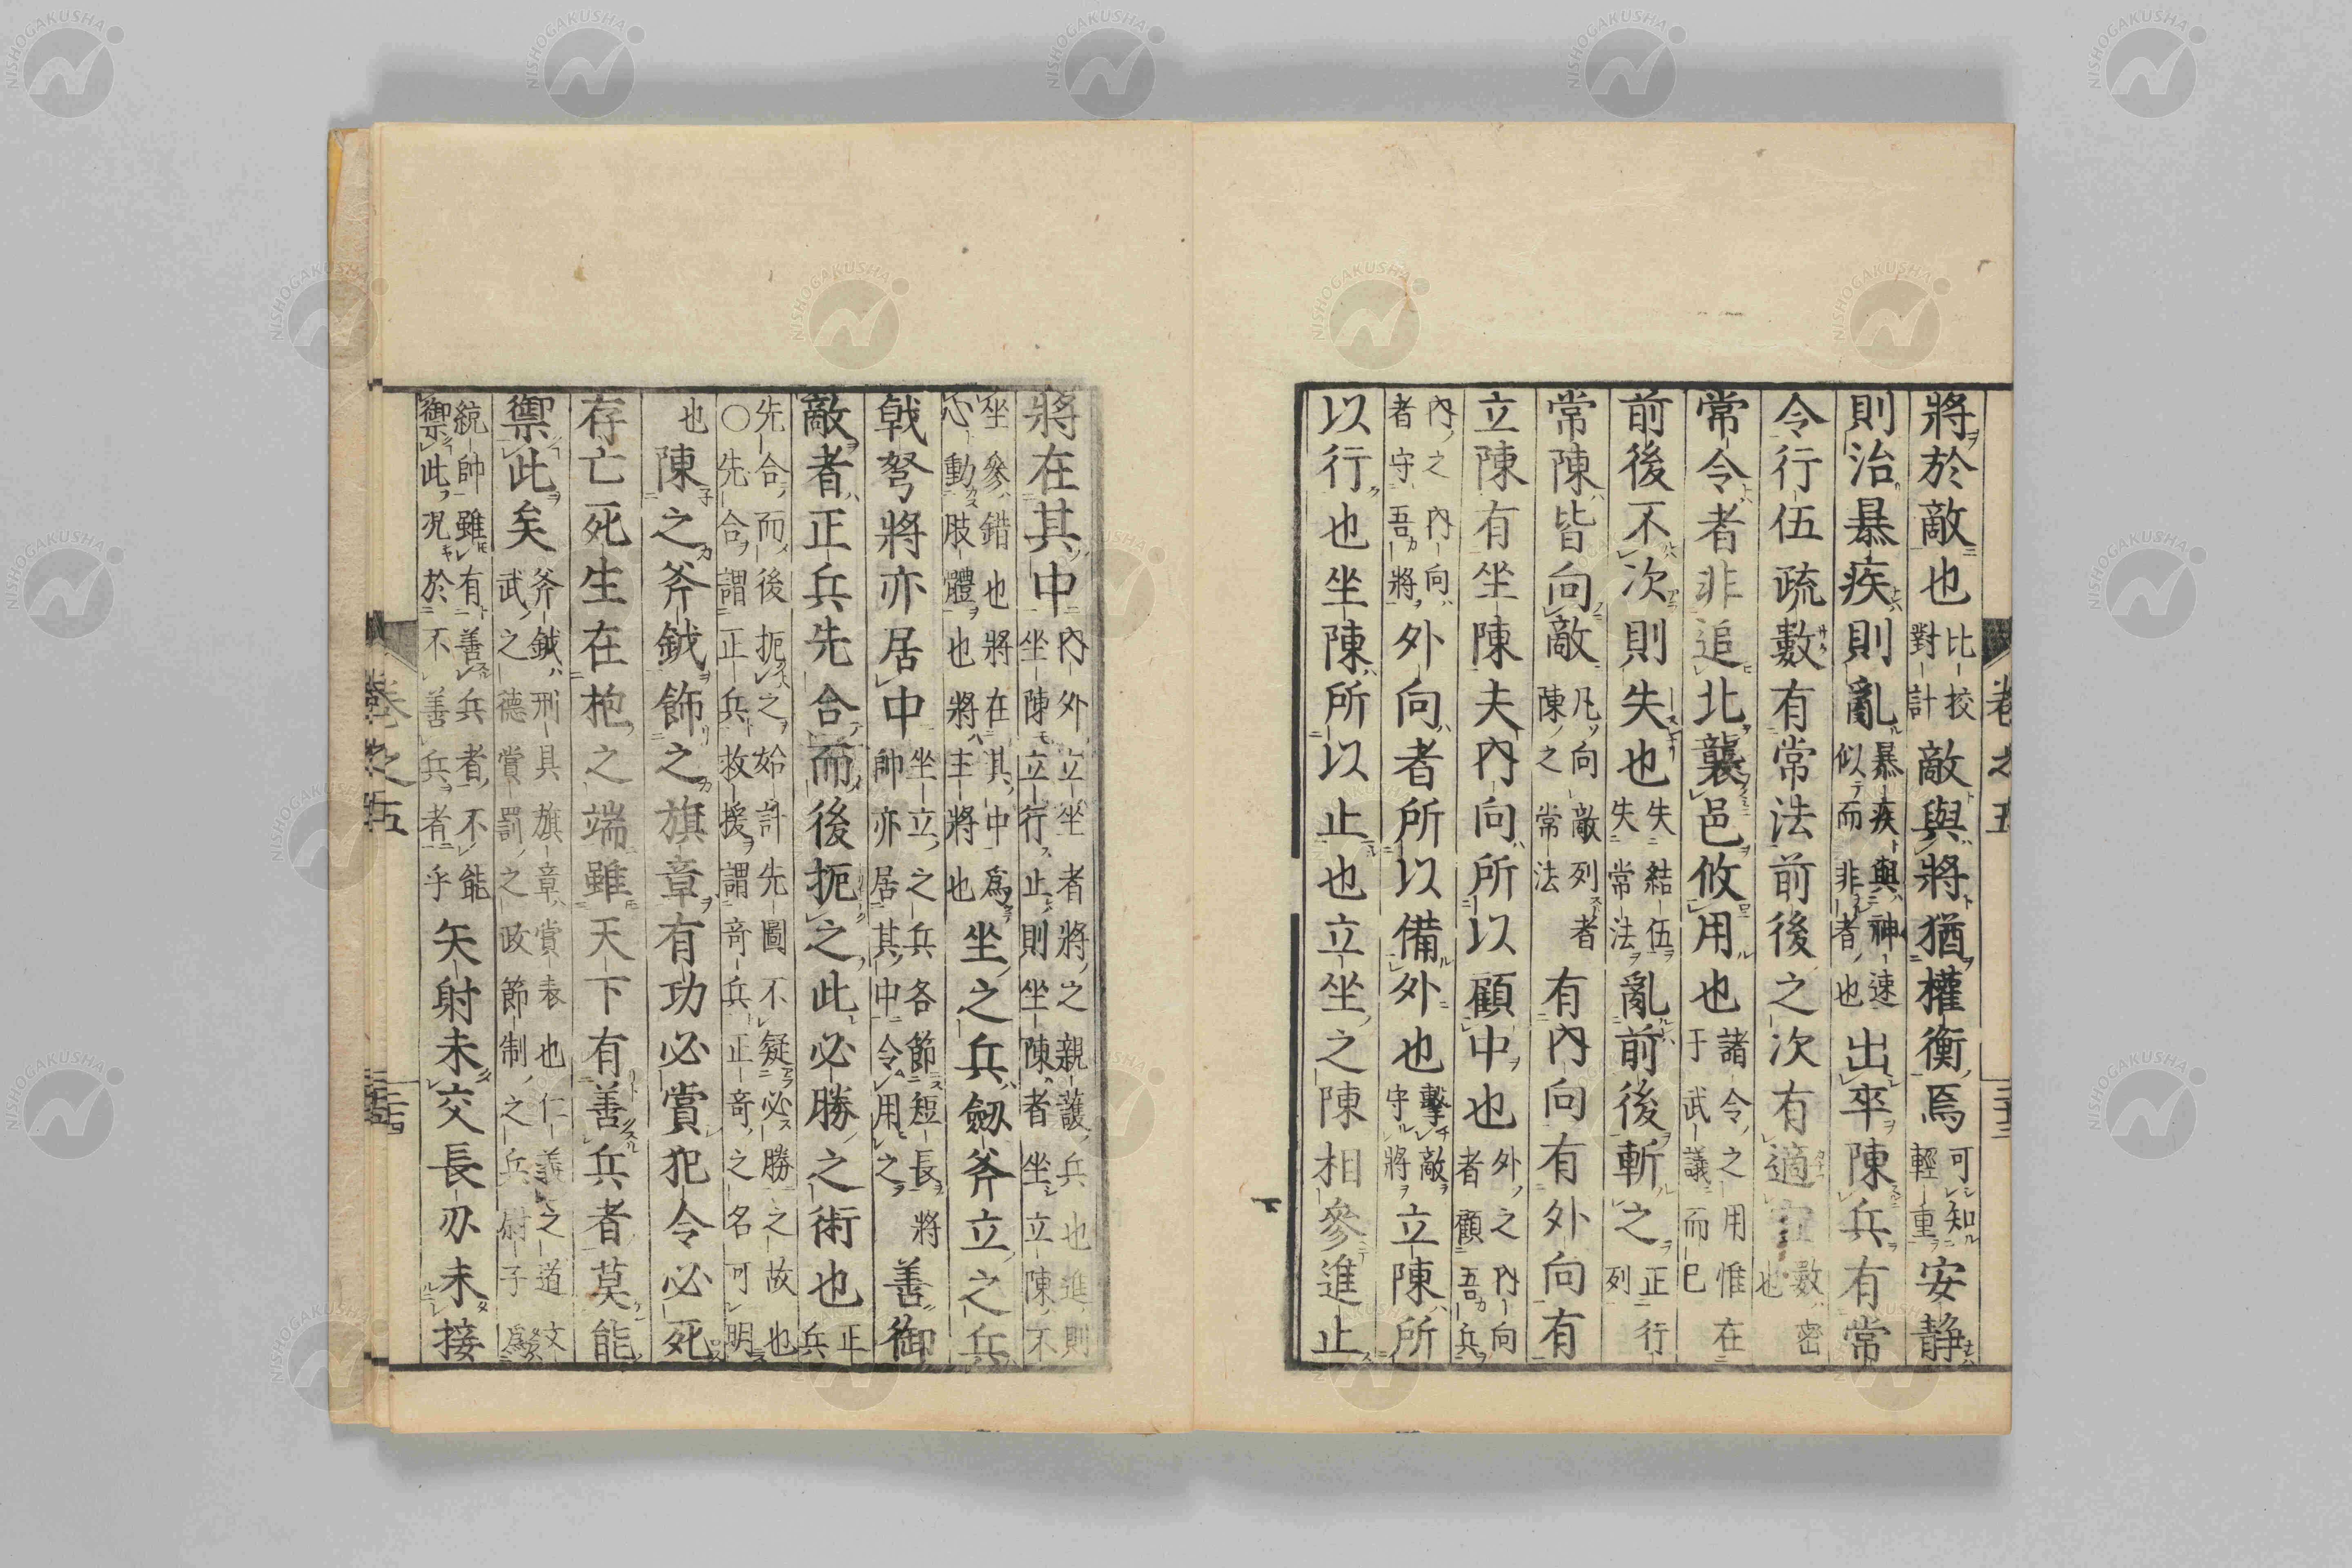 將於敵也比挍對計敵與將猶權衡焉可知輕重安靜
則治暴疾則亂暴疾與神速似而非者也出卒陳兵有常
令行伍疏數有常法前後之次有適宜數密也
常令者非追北襲邑攸用也諸令之用惟在于武議而已
前後不次則失也失結伍失常法亂前後斬之正行列
常陳皆向敵凡向敵列者陳之常法有內向有外向有
立陳有坐陳夫內向所以顧中也外之內向者顧吾兵
內之內向者守吾將外向者所以備外也擊敵守將立陳所
以行也坐陳所以止也立坐之陳相參進止
將在其中內外立坐者將之親護兵也進則坐陳立行止則坐陳者坐立陳不
坐參錯也將在其中爲心動肢體也將主將也坐之兵劒斧立之兵
戟弩將亦居中坐立之兵各節短長將帥亦居其中令用之善御
敵者正兵先合而後扼之此必勝之術也正兵
先合而後扼之始許先圖不疑必勝之故也〇先合謂正兵救援謂奇兵正奇之名可明
也陳之斧鉞飾之旗章有功必賞犯令必死
存亡死生在枹之端雖天下有善兵者莫能
禦此矣斧鉞刑具旗章賞表也仁義之道文武之德賞罰之政節制之兵尉子爲
統帥雖有善兵者不能禦此況於不善兵者乎矢射未交長刃未接
卷之五
二十四
NISHOGAKUSHA